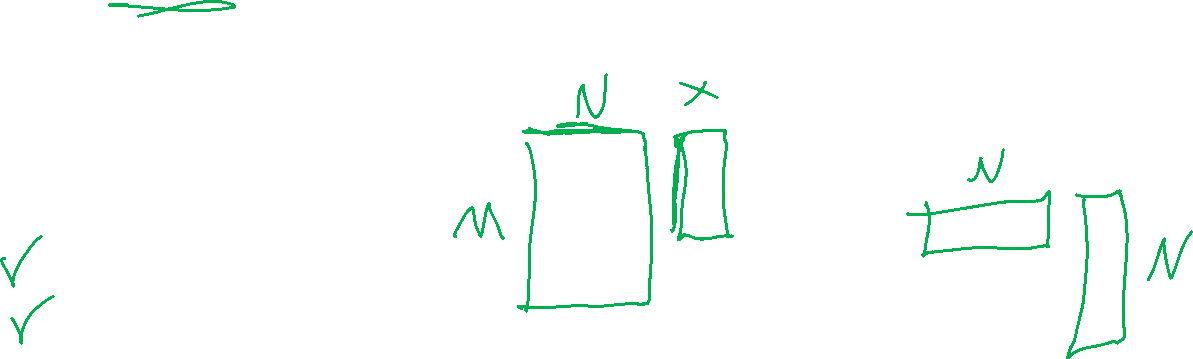 N x
M
N
N